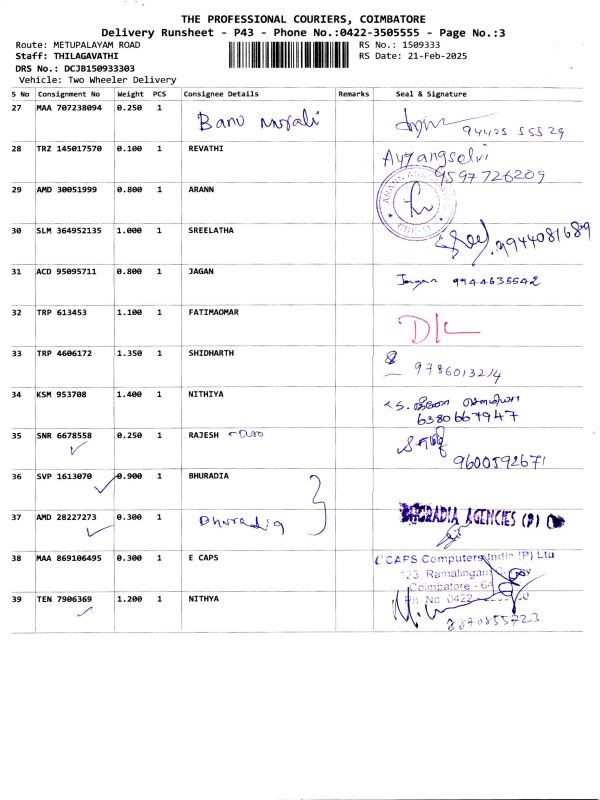 THE PROFESSIONAL COURIERS, COIMBATORE
Delivery Runsheet - P43 - Phone No.:0422-3505555 - Page No.:3
Route: METUPALAYAM ROAD RS No.: 1509333
Staff: THILAGAVATHI RS Date: 21-Feb-2025
DRS No.: DCJB150933303
Vehicle: Two Wheeler Delivery
S No Consignment No Weight PCS Consignee Details Remarks Seal & Signature
27 MAA 707238094 0.250 1 Banu Murali 94425 55529
28 TRZ 145017570 0.100 1 REVATHI Ayyangselvi
9597726209
29 AMD 30051999 0.800 1 ARANN
30 SLM 364952135 1.000 1 SREELATHA 9944081689
31 ACD 95095711 0.800 1 JAGAN Jagan 9944635542
32 TRP 613453 1.100 1 FATIMAOMAR D/L
33 TRP 4606172 1.350 1 SHIDHARTH 9786013214
34 KSM 953708 1.400 1 NITHIYA
6380667947
35 SNR 6678558 0.250 1 RAJESH
9600592671
36 SVP 1613070 0.900 1 BHURADIA
37 AMD 28227273 0.300 1 Bhuradia BHURADIA AGENCIES (P)
38 MAA 869106495 0.300 1 E CAPS CAPS Computers India (P) Ltd
123, Ramalingam
Coimbatore - 6
Ph No 0422
39 TEN 7906369 1.200 1 NITHYA
8870855723